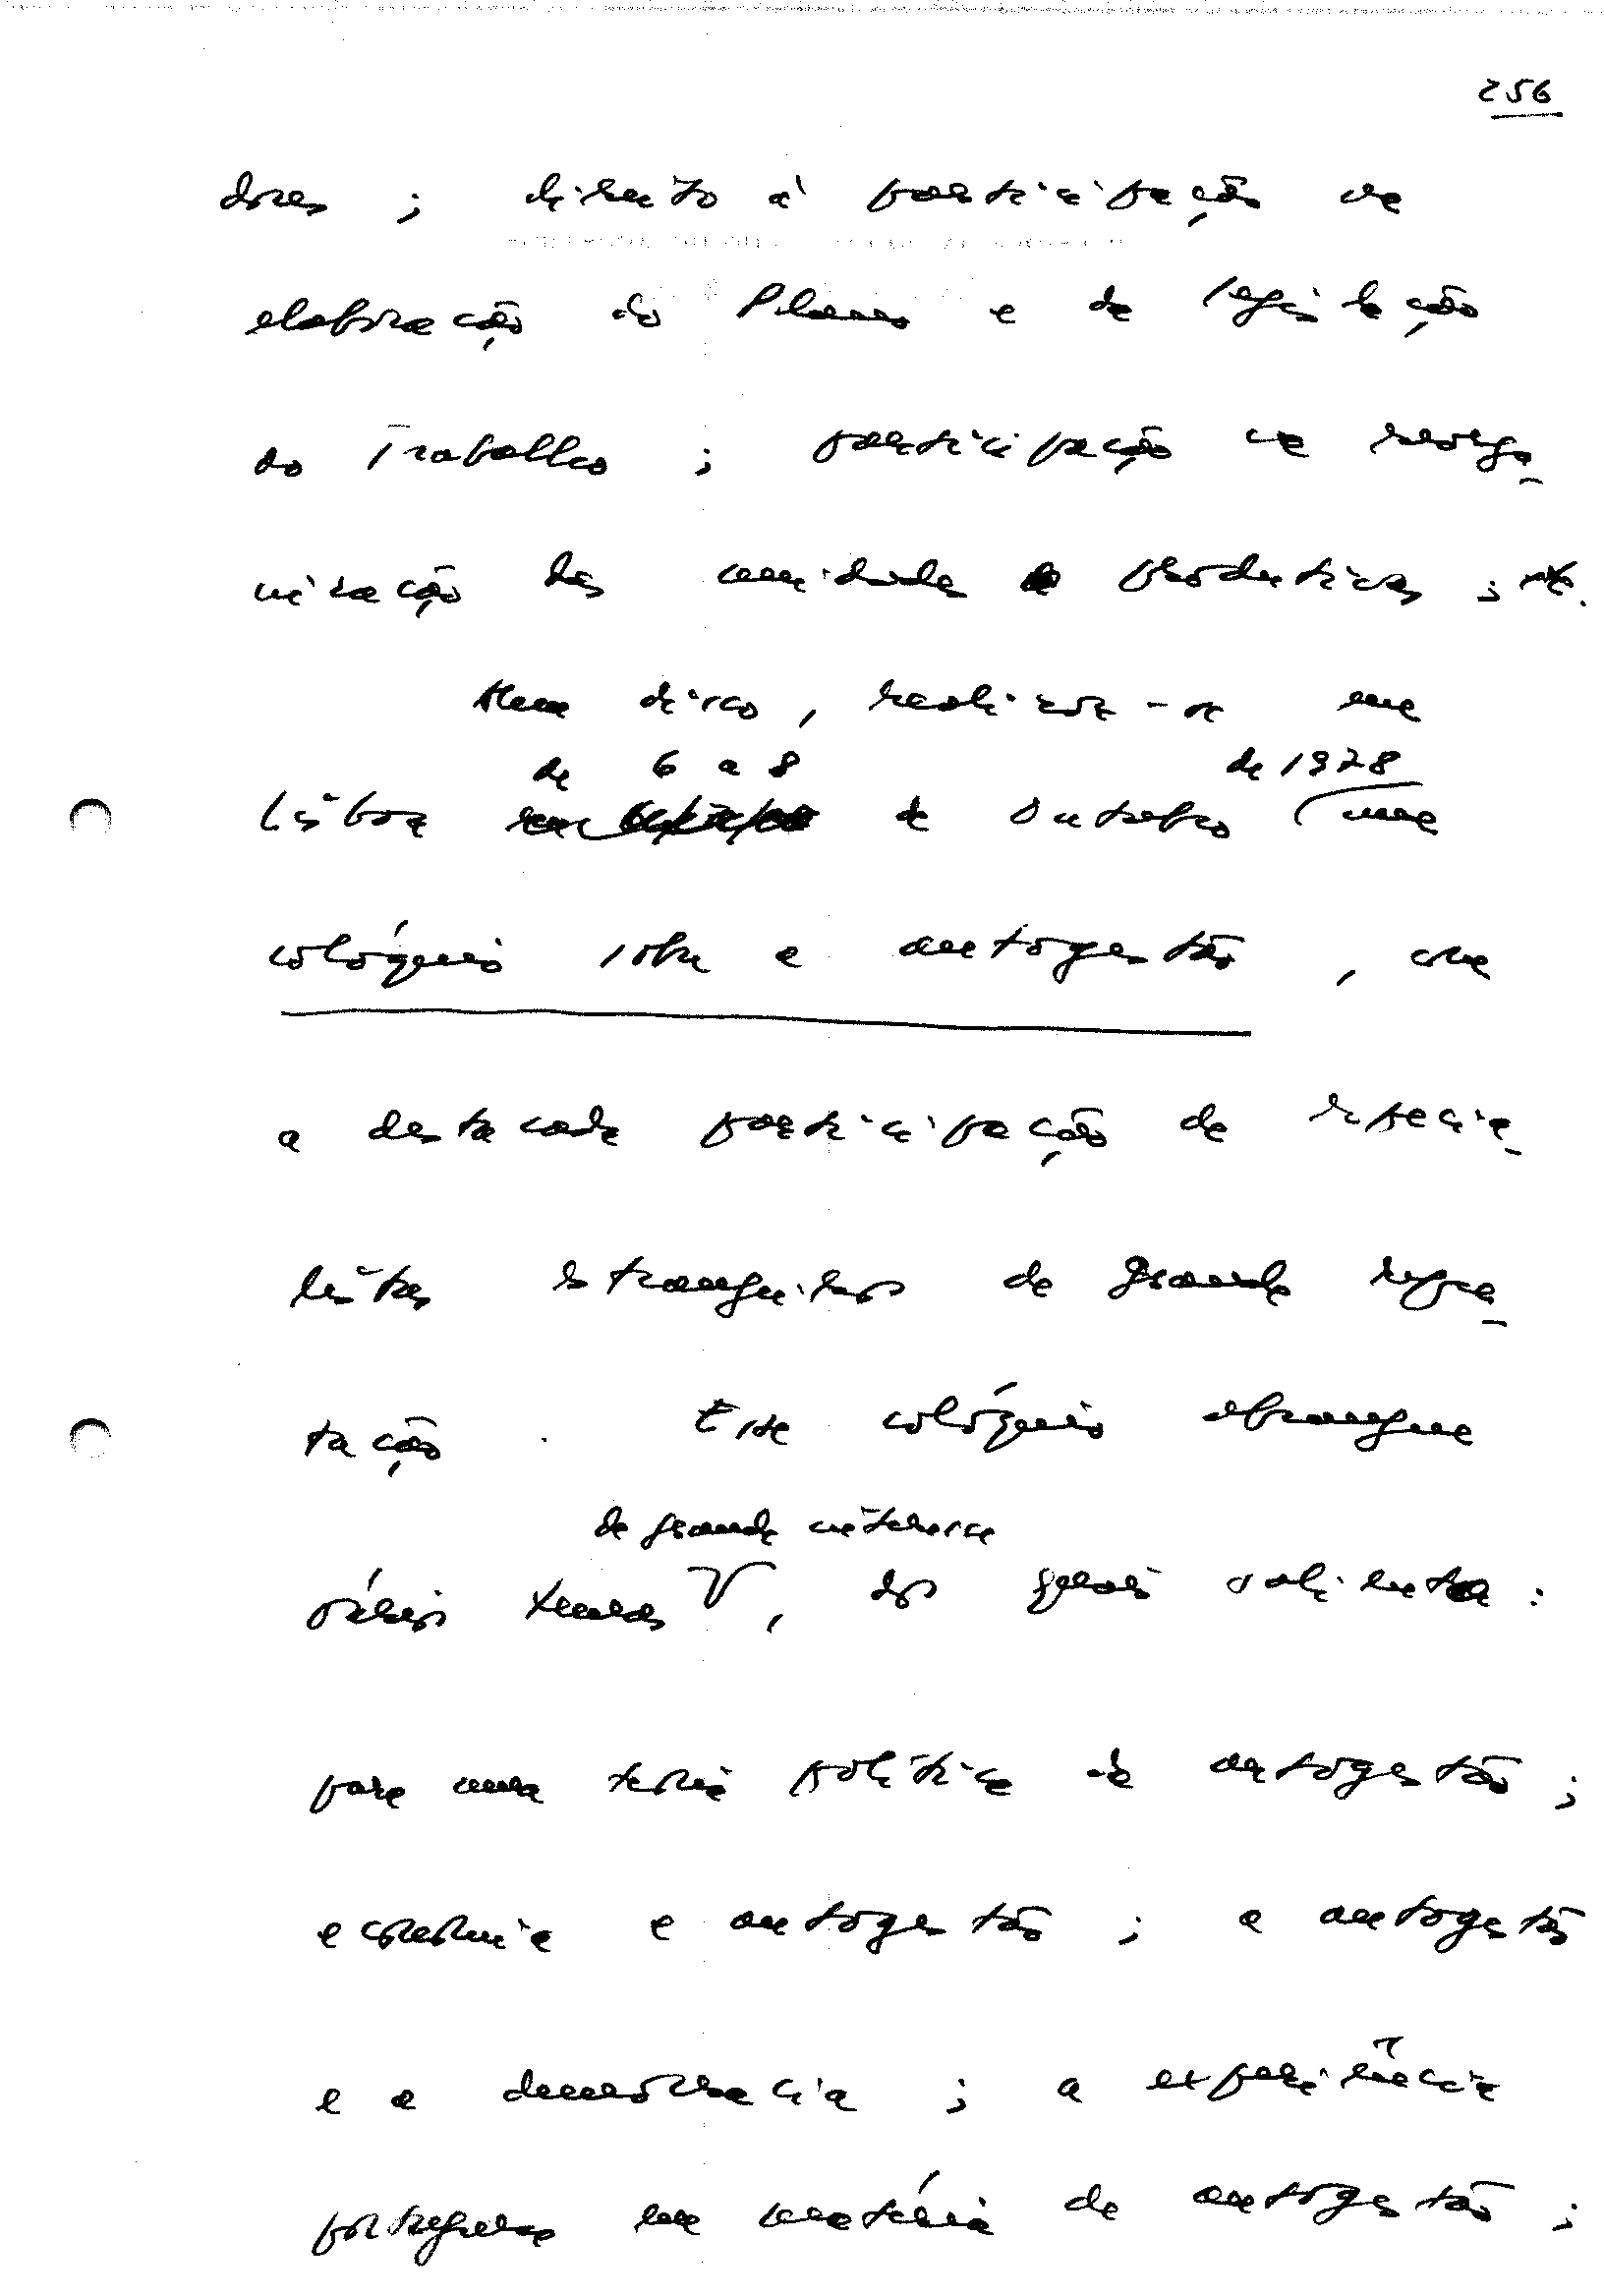 256
dores ; direito à participação na
elaboração do Plano e da legislação
do Trabalho ; participação na reorga-
nização das unidades produtivas ; etc.
Além disso, realizou-se em
de 6 a 8 de 1978
Lisboa de Outubro um
colóquio sobre a autogestão, com
a destacada participação de especia-
listas estrangeiros de grande repu-
tação. Este colóquio abrangeu
de grande interesse
vários temas, dos quais saliento :
para uma teoria política da autogestão ;
a economia e autogestão ; a autogestão
e a democracia ; a experiência
portuguesa em matéria de autogestão ;